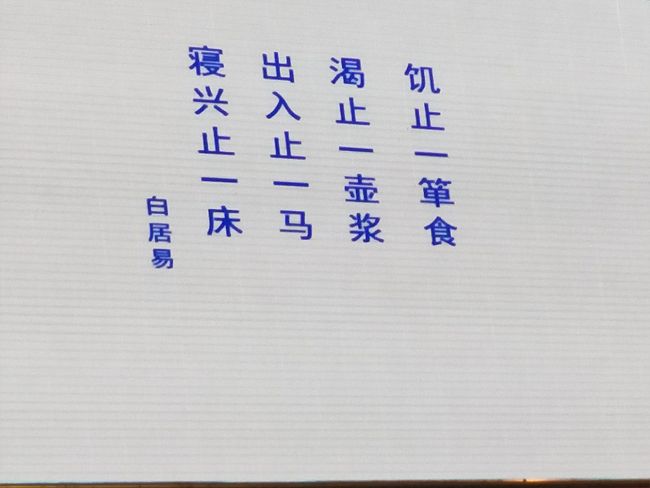 饥止一箪食
渴止一壶浆
出入止一马
寝兴止一床
白居易